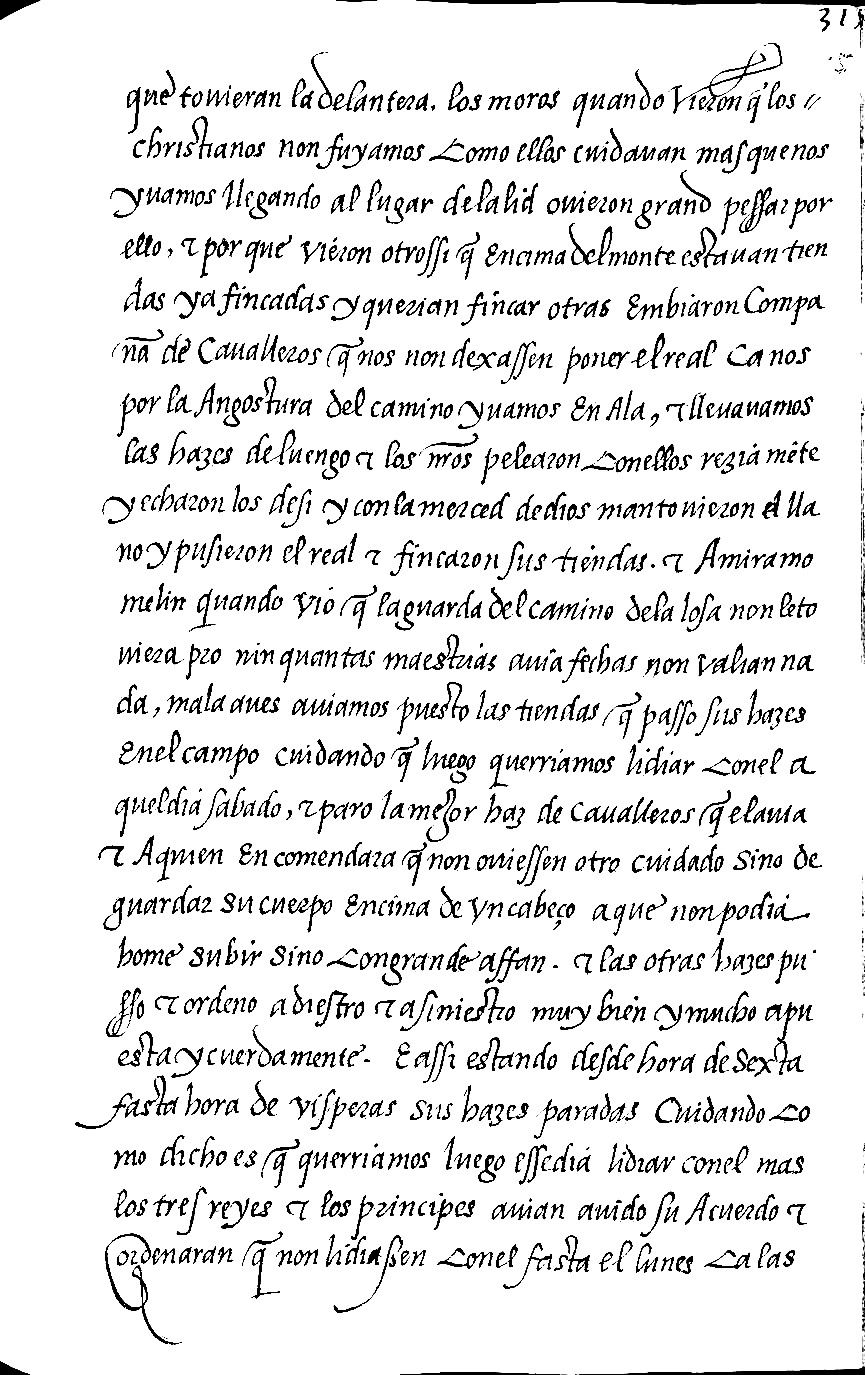 315
que touieran la delantera. los moros quando vieron q̃ los
christianos non fuyamos Como ellos cuidauan mas que nos
yuamos llegando al lugar de la lid ouieron grand pessar por
ello, τ por que vieron otrossi q̃ Encima del monte estauan tien
das ya fincadas y querian fincar otras Embiaron Compa
ña de Caualleros q̃ nos non dexassen poner el real Ca nos
por la Angostura del camino yuamos En Ala, τ lleuauamos
las hazes de luengo τ los nr̃os pelearon Con ellos rezia mẽte
y echaron los desi y con la merced de dios mantouieron el lla
no y pusieron el real τ fincaron sus tiendas. τ Amiramo
melin quando vio q̃ la guarda del camino de la losa non le to
uiera pro nin quantas maestrias auia fechas non valian na
da, mala aues auiamos puesto las tiendas q̃ passo sus hazes
En el campo cuidando q̃ luego querriamos lidiar Con el a
quel dia sabado, τ paro la mejor haz de Caualleros q̃ el auia
τ Aquien En comendara q̃ non ouiessen otro cuidado sino de
guardar su cuerpo Encima de vn cabeço a que non podia
home subir sino Con grande affan. τ las otras hazes pu
sso τ ordeno a diestro τ a siniestro muy bien y mucho apu
esta y cuerdamente. E assi estando desde hora de Sexta
fasta hora de visperas sus hazes paradas Cuidando Co
mo dicho es q̃ querriamos luego esse dia lidiar con el mas
los tres reyes τ los principes auian auido su Acuerdo τ
ordenaran q̃ non lidiassen Con el fasta el lunes Ca las